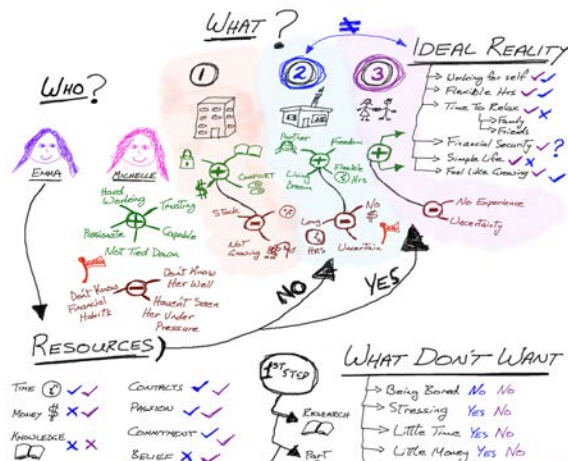 WHAT?
WHO?
EMMA
MICHELLE
Hard
Working
Trusting
Passionate
Capable
Not Tied Down
Don't Know
Her Well
Don't Know
Financial
Habits
Haven't Seen
Her Under
Pressure
1
$
COMFORT
Stuck
Not
Growing
2
Partner
Freedom
Living
Dream
Flexible
Hrs
Long
HRS
No
$
Uncertain
3
No Experience
Uncertainty
≠
IDEAL REALITY
Working for self
Flexible Hrs
Time To Relax
Family
Friends
Financial Security ?
Simple Life
Feel Like Growing
NO
YES
RESOURCES
TIME
MONEY $
KNOWLEDGE
CONTACTS
PASSION
COMMITMENT
BELIEF
1ST STEP
RESEARCH
PART
WHAT DON'T WANT
Being Bored No No
Stressing Yes No
Little Time Yes No
Little Money Yes No